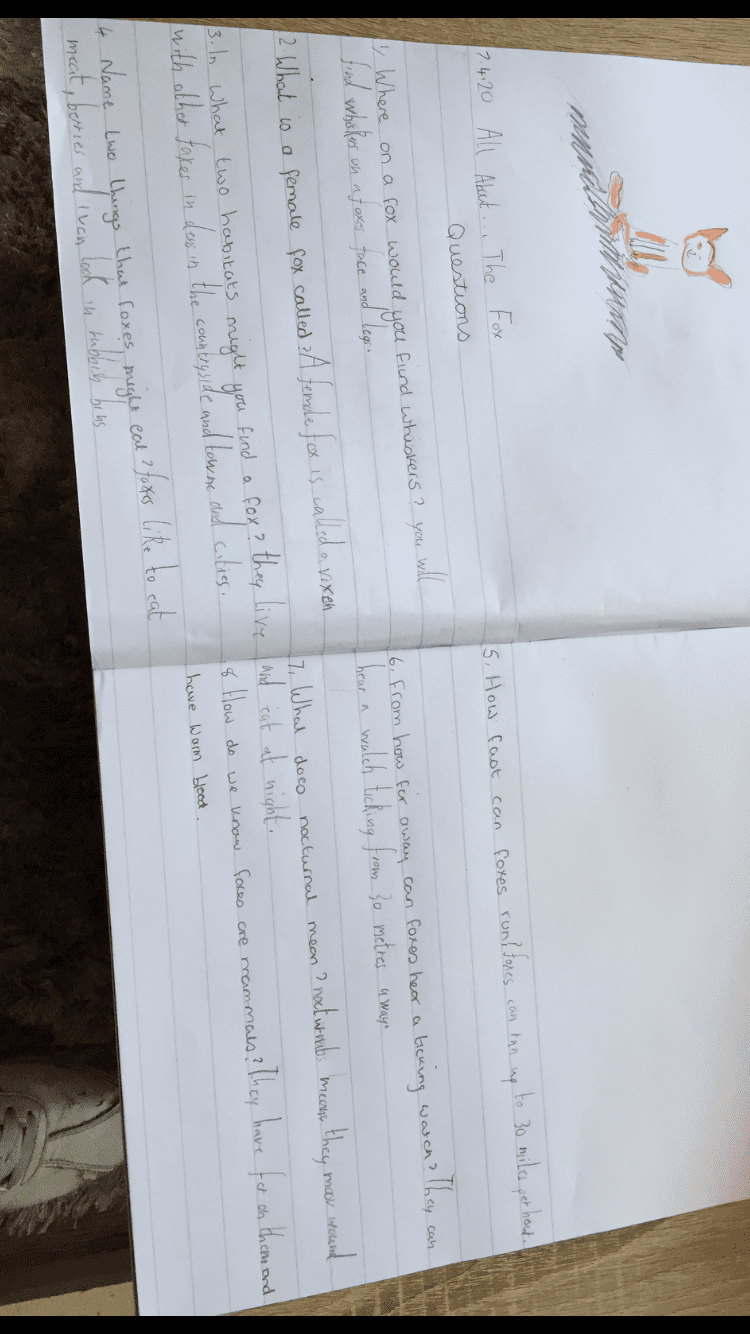 7.4.20 All About... The Fox
Questions
1, Where on a fox would you find whiskers? you will
find whiskers on a foxes face and legs.
2 What is a female fox called? A female fox is called a vixen
3. In what two habitats might you find a fox? they live
with other foxes in dens in the countryside and towns and cities.
4. Name two things that foxes might eat? foxes like to eat
meat, berries and look in rubbish bins
5. How fast can foxes run? foxes can run up to 30 miles per
6. From how far away can foxes hear a ticking watch? They can
hear a watch ticking from 30 metres away.
7. What does nocturnal mean? means they
and eat at night.
8 How do we know foxes are mammals? They have fer on them and
have warm blood.